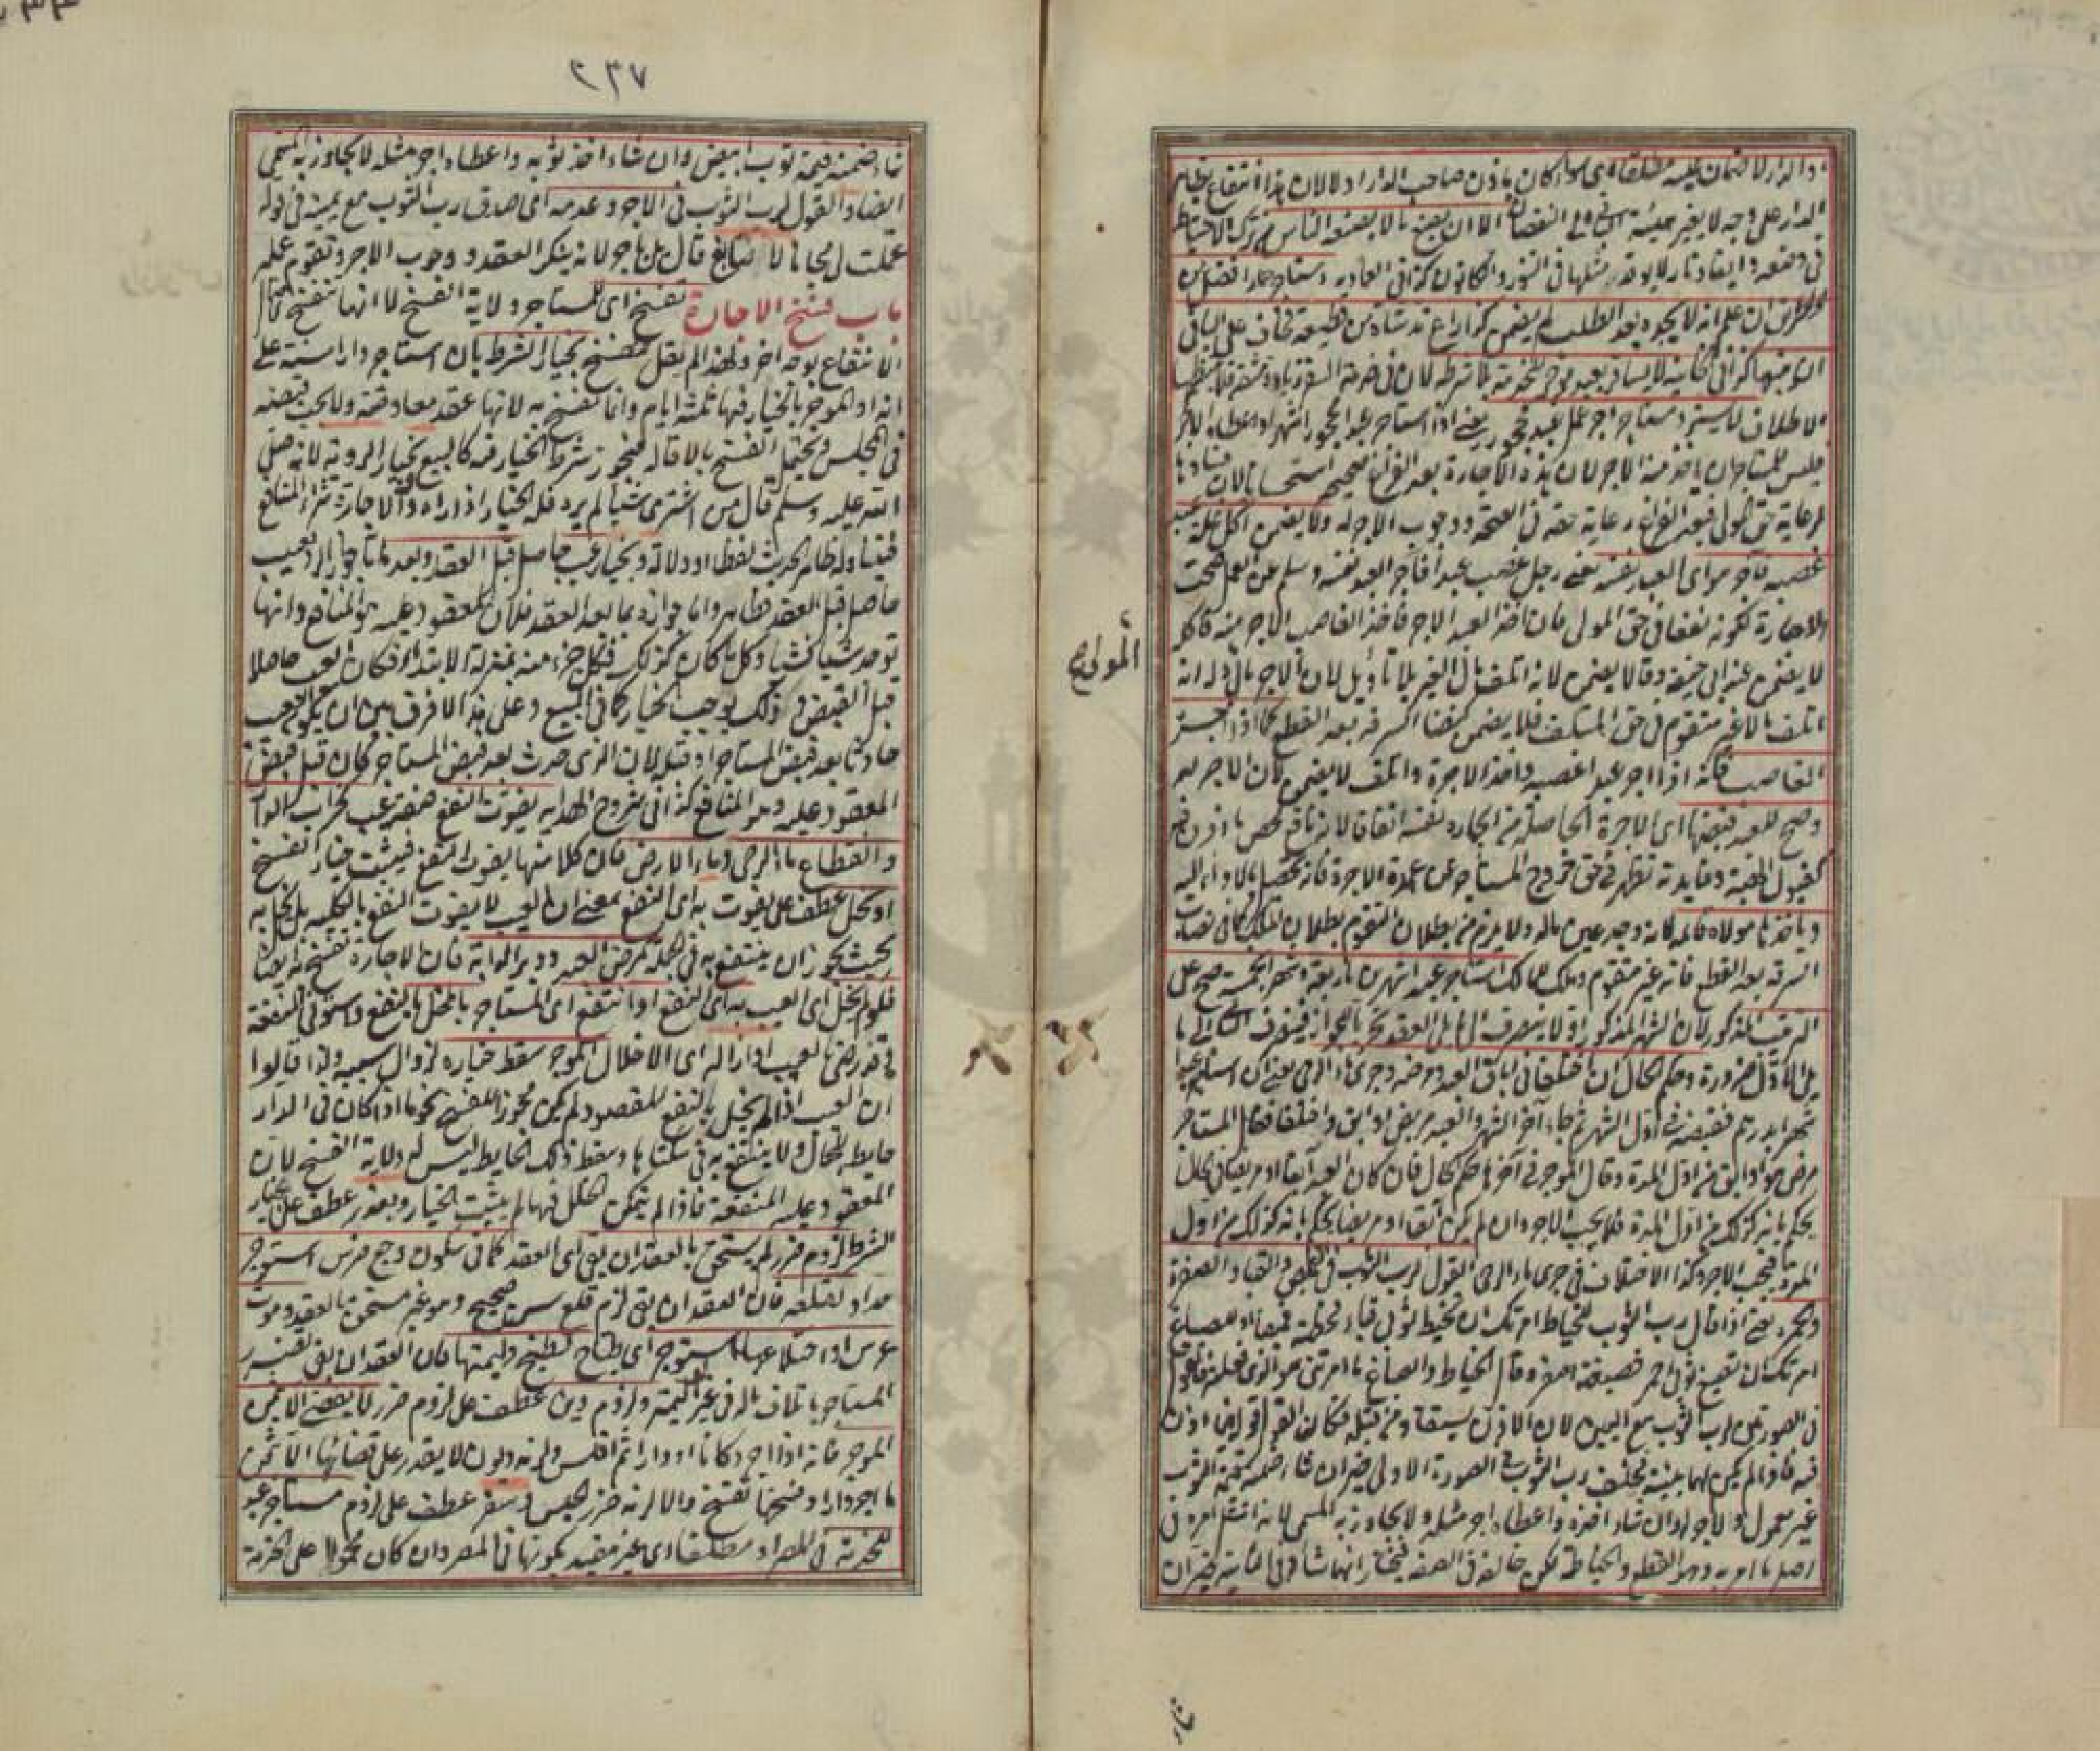 او الدار لا ضمان عليه مطلقا اي سواء كان باذن صاحب الدار او لا لان هذا انتفاع بظاهر
الدار على وجه لا يغير هيئة الى النقصان الا ان يصنع ما لا يصنعه الناس من ترك الاحتياط
في وضعه و ايقاد نار لا يوقد مثلها في التنور والكانون كذا في العمادية استاجر حمارا فضل من
الطريق ان علم انه لا يجده بعد الطلب لم يضمن كذا راع ند شاة من قطيعه فخاف على الباقي
ان تبعها كذا في الخانية لا يسافر بعبد موجر للخدمة بلا شرطه لان في خدمة السفر زيادة مشقة فلا ينتظمها
الاطلاق لا يسترد مستاجر اجر عمل عبد محجور يعني اذا استاجر عبدا محجورا شهرا واعطاه الاجر
فليس للمستاجر ان ياخذ منه الاجر لان هذه الاجارة بعد الفراغ صحيحة استحسانا لان فسادها
لرعاية حق المولى فبعد الفراغ رعاية حقه في الصحة ووجوب الاجر له ولا يضمن اكل غلة عبد
غصبه فآجر هو اي العبد نفسه يعني رجل غصب عبدا فآجر العبد نفسه وسلم عن العمل صحت
الاجارة لكونه نفعا في حق المولى فان اخذ العبد الاجر فاخذ الغاصب الاجر منه فاكله
لا يضمن عند ابي حنيفة وقالا يضمن لانه اتلف مال الغير بلا تاويل لان الاجر مال وله انه
اتلف مالا غير متقوم في حق المتلف فلا يضمن كنصاب السرقة بعد القطع كما اذا اجره
الغاصب فانه اذا اجر عبدا غصبه واخذ الاجرة واتلف لا يضمن لان الاجر له
وصح للعبد قبضها اي الاجرة الحاصلة من ايجاره نفسه اتفاقا لانه نافع محض ماذون فيه
كقبول الهبة وفايدته تظهر في حق خروج المستاجر عن عهدة الاجرة فانه يحصل بالاداء اليه
وياخذها مولاه قائمة لانه وجد عين ماله ولا يلزم من بطلان التقوم بطلان الملك كما في نصاب
السرقة بعد القطع فانه غير متقوم وملك للمالك استاجر عبدا شهرين شهرا باربعة وشهرا بخمسة صح على
الترتيب المذكور لان الشهر المذكور اولا ينصرف الى ما يلي العقد تحريا للجواز فينصرف الثاني الى ما
يلي الاول ضرورة وحكم الحال ان اختلفا في اباق العبد ومرضه وجرى ماء الرحى يعني ان استاجر عبدا
شهرا بدرهم فقبضه في اول الشهر ثم جاء آخر الشهر والعبد مريض او ابق واختلفا فقال المستاجر
مرض هو او ابق في اول المدة وقال الموجر في آخرها حكم الحال فان كان العبد آبقا او مريضا في الحال
يحكم بانه كذلك من اول المدة فلا يجب الاجر وان لم يكن آبقا او مريضا يحكم بانه كذلك من اول
المدة فيجب الاجر وكذا الاختلاف في جرى ماء الرحى القول لرب الثوب في القميص والقباء والصفرة
والحمرة يعني اذا قال رب الثوب للخياط امرتك ان تخيط ثوبي قباء فخطته قميصا او للصباغ
امرتك ان تصبغ ثوبي احمر فصبغته اصفر وقال الخياط والصباغ ما امرتني هو الذي فعلته فالقول
في الصورتين لرب الثوب مع اليمين لان الاذن يستفاد من قبله فكان القول قوله في اذن
فيه فاذا لم يكن لهما بينة يحلف رب الثوب في الصورة الاولى خير ان شاء ضمنه قيمة الثوب
غير معمول ولا اجر له وان شاء اخذه واعطاه اجر مثله ولا يجاوز به المسمى لانه امتثل امره في
اصل ما امر به وهو القطع والخياطة لكن خالف في الصفة فيختار ايهما شاء وفي الثانية خير ان
المولى صح
٢٣٧
شاء ضمنه قيمة ثوب ابيض وان شاء اخذ ثوبه واعطاه اجر مثله لا يجاوز به المسمى
ايضا والقول لرب الثوب في الاجر وعدمه اي صدق رب الثوب مع يمينه في قوله
عملت لي مجانا لا الصانع قال بل باجر لانه ينكر العقد ووجوب الاجر وتقوم عمله
باب فسخ الاجارة تفسخ اي للمستاجر ولاية الفسخ لا انها تنفسخ لامكان
الانتفاع بوجه اخر ولهذا لم يقل تنفسخ بخيار الشرط بان استاجر دارا سنة على
انه او الموجر بالخيار فيها ثلثة ايام وانما تفسخ به لانها عقد معاوضة ولا يجب قبضه
في المجلس ويحتمل الفسخ بالاقالة فيجوز شرط الخيار فيه كالبيع وبخيار الروية لانه صلى
الله عليه وسلم قال من اشترى شيئا لم يره فله الخيار اذا راه والاجارة شراء المنافع
فيتناوله ظاهر الحديث لفظا او دلالة وبخيار عيب حاصل قبل العقد وبعده اما جواز الرد بعيب
حاصل قبل العقد فظاهر واما جوازه بما بعد العقد فلان المعقود عليه هو المنافع وانها
توجد شيئا فشيئا وكل ما كان كذلك فكل جزء منه بمنزلة الابتداء فكان العيب حاصلا
قبل القبض وذلك يوجب الخيار كما في البيع وعلى هذا لا فرق بين ان يكون العيب
حادثا بعد قبض المستاجر او قبله لان الذي حدث بعد قبض المستاجر كان قبل قبض
المعقود عليه وهو المنافع كذا في شروح الهداية يفوت النفع صفة عيب كخراب الدار
وانقطاع ماء الرحى وماء الارض فان كلا منها يفوت النفع فيثبت خيار الفسخ
او يخل عطف على يفوت به اي النفع بمعنى ان العيب لا يفوت النفع بالكلية بل يخل به
بحيث يجوز ان ينتفع به في الجملة كمرض العبد ودبر الدابة فان الاجارة تفسخ به ايضا
فلو لم يخل اي العيب به اي النفع او انتفع اي المستاجر بالمخل بالنفع واستوفى المنفعة
فقد رضي بالعيب او ازاله اي الاخلال الموجر سقط خياره لزوال سببه ولذا قالوا
ان العيب اذا لم يخل بالنفع المقصود لم يكن مجوزا للفسخ نحو ما اذا كان في الدار
حايط للجمال ولا ينتفع به في سكناها وسقط ذلك الحايط ليس له ولاية الفسخ لان
المعقود عليه المنفعة فاذا لم يتمكن الخلل فيها لم يثبت الخيار وبعذر عطف على بخيار
الشرط لزوم ضرر لم يستحق بالعقد ان بقي اي العقد كما في سكون وجع ضرس استوجر
حداد لقلعه فان العقد ان بقي لزم قلع سن صحيح وهو غير مستحق بالعقد وموت
عرس او اختلاعها استوجر اي طباخ لطبخ وليمتها فان العقد ان بقي تضرر
المستاجر باتلاف ماله في غير الوليمة ولزوم دين عطف على لزوم ضرر لا يقضى الا بثمن
الموجر فانه اذا اجر دكانا او دارا ثم افلس ولزمه ديون لا يقدر على قضائها الا بثمن
ما اجر دارا وفسخها تفسخ والا لزمه ضرر الحبس وسفر عطف على لزوم مستاجر عبد
للخدمة في المصر او مطلقا اي غير مقيد بكونها في المصر وان كان محمولا على الخدمة